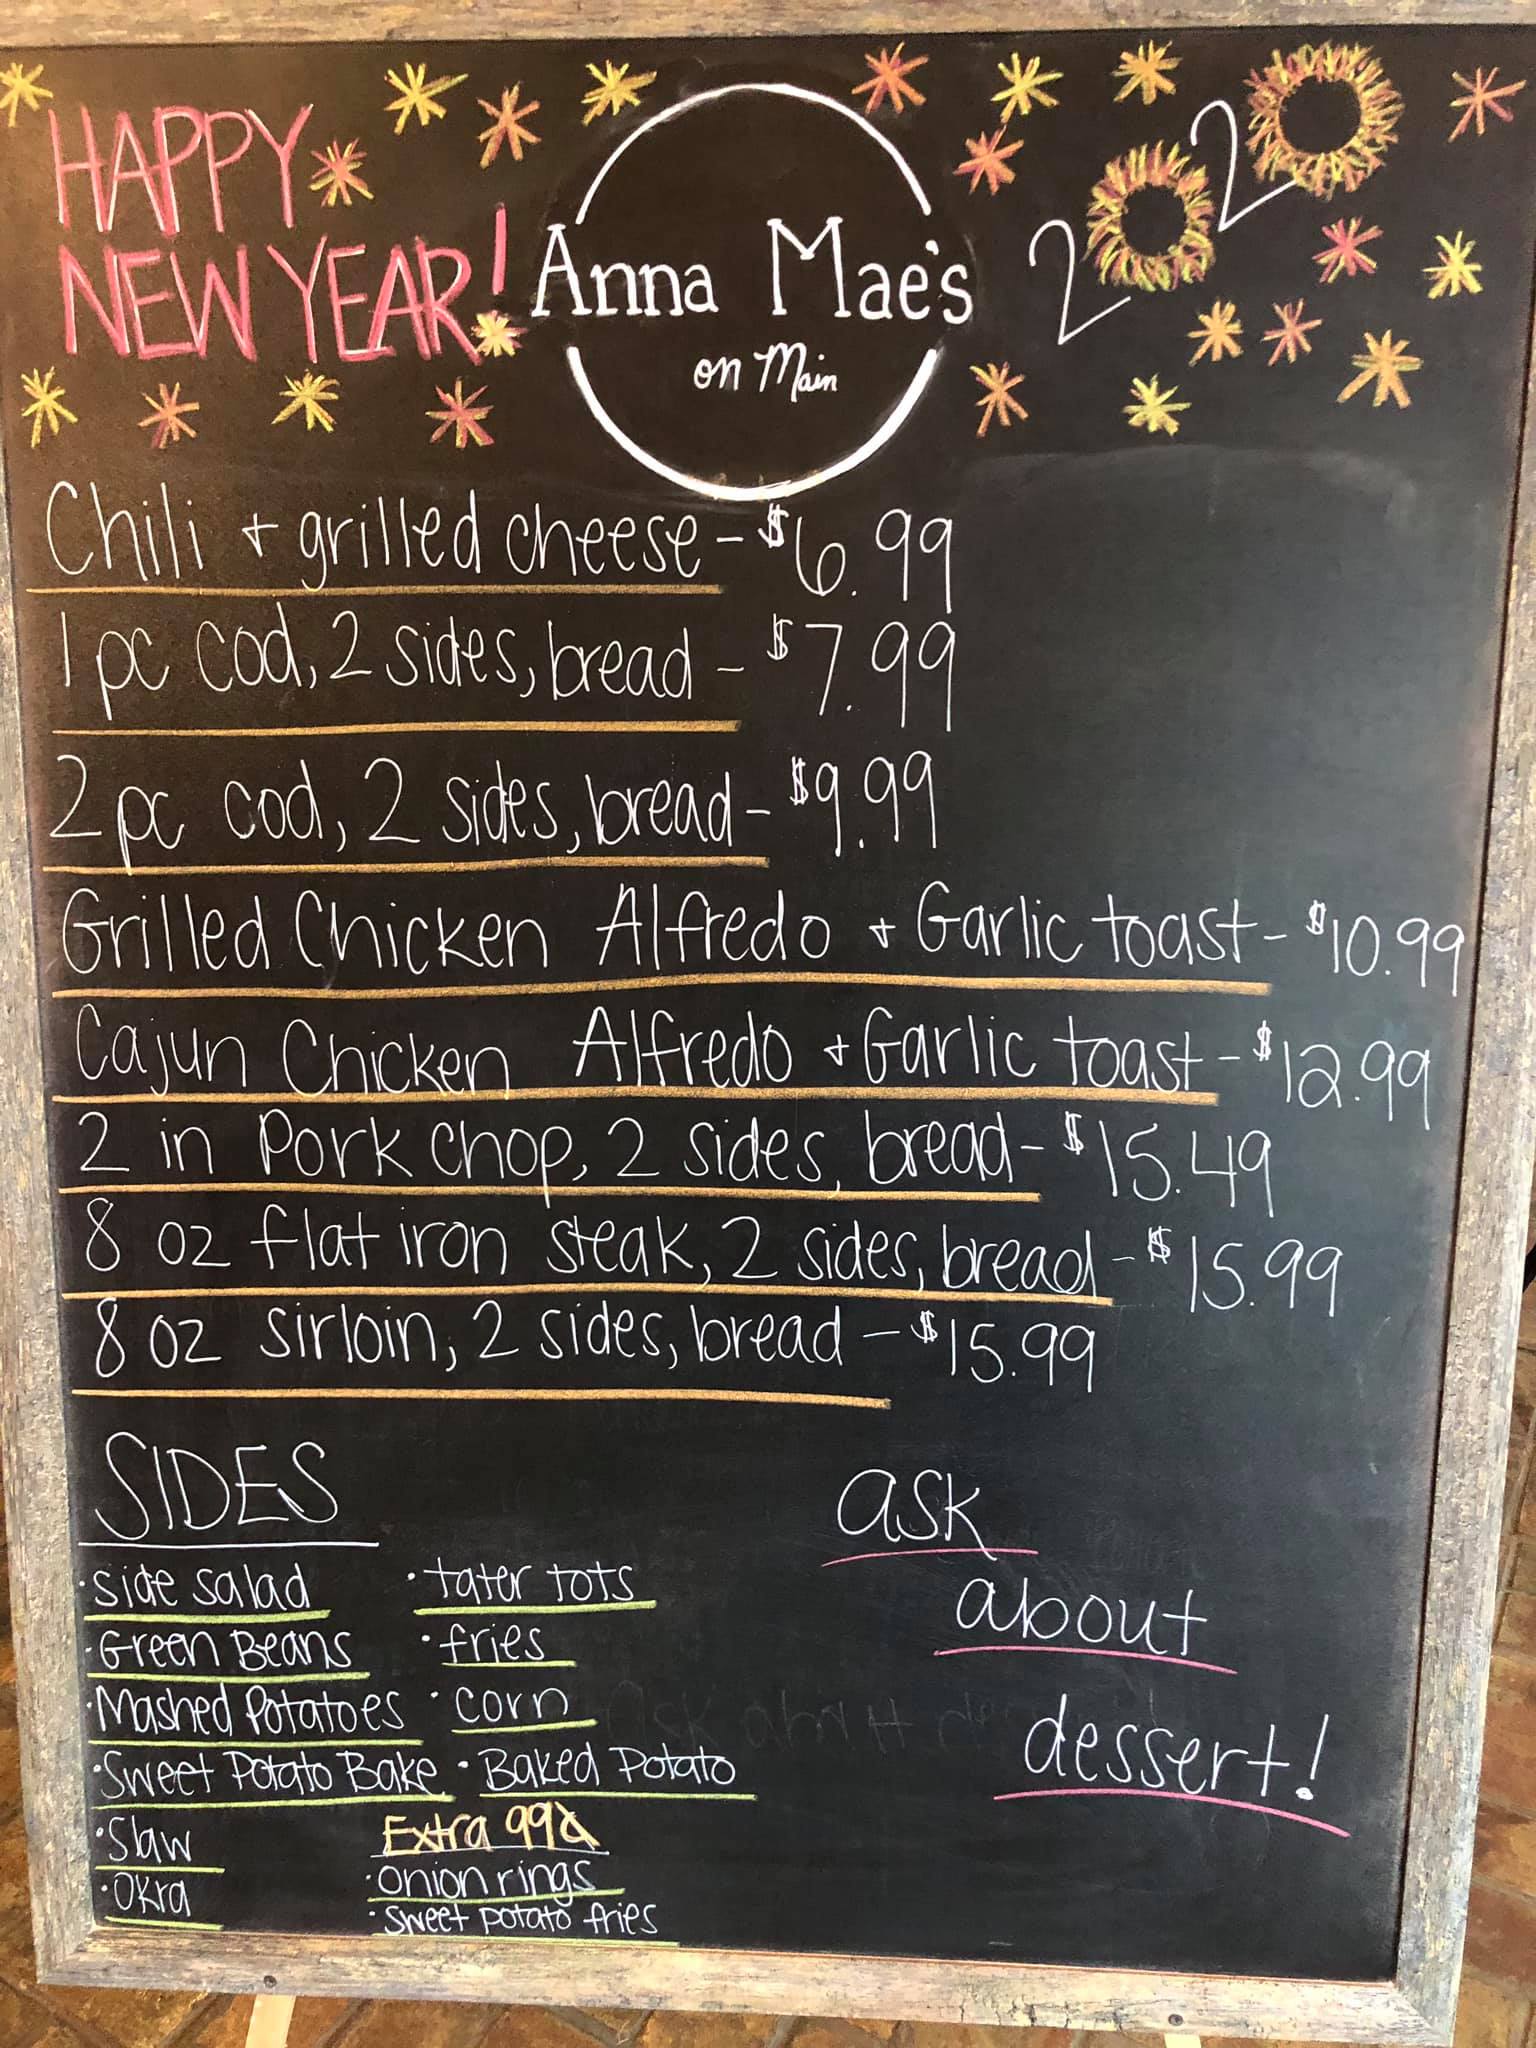 HAPPY
NEW YEAR!
Anna Mae's
on Main
2020
Chili + grilled cheese - $6.99
1 pc cod, 2 sides, bread - $7.99
2 pc cod, 2 sides, bread - $9.99
Grilled Chicken Alfredo + Garlic toast - $10.99
Cajun Chicken Alfredo + Garlic toast - $12.99
2 in Pork chop, 2 sides, bread - $15.49
8 oz flat iron steak, 2 sides, bread - $15.99
8 oz sirloin, 2 sides, bread - $15.99
SIDES
• Side Salad
• Green Beans
• Mashed Potatoes
• Sweet Potato Bake
• Slaw
• Okra
• tater tots
• fries
• corn
• Baked Potato
Extra 99¢
• Onion rings
• Sweet potato fries
ask
about
dessert!